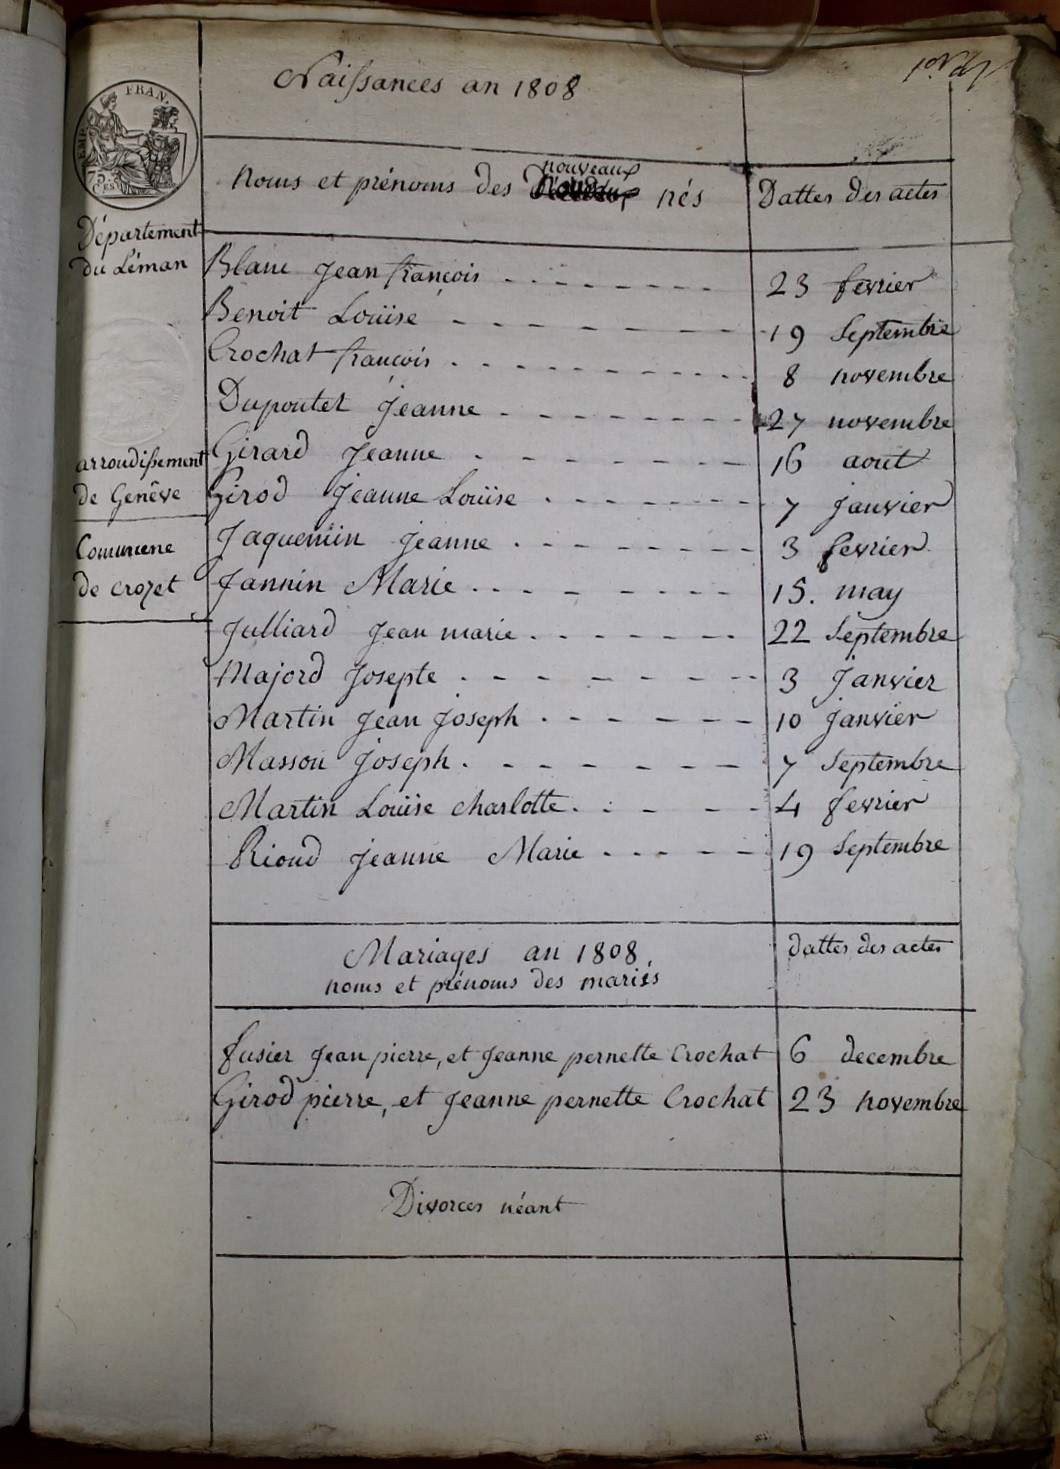 Naissances an 1808
EMP. FRAN.
75.
CES
Département
du Léman
arrondissement
de Genêve
Commune
de crozet
nouveaux
Noms et prénoms des nés Dattes des actes
Blanc Jean françois 23 fevrier
Benoit Louise 19 Septembre
Crochat françois 8 novembre
Dupontet Jeanne 27 novembre
Girard Jeanne 16 aout
Girod Jeanne Louise 7 Janvier
Jaquemin Jeanne 3 fevrier
Jannin Marie 15. may
Julliard Jean marie 22 Septembre
Majord Josepte 3 Janvier
Martin Jean Joseph 10 Janvier
Masson Joseph 7 Septembre
Martin Louise charlotte 4 fevrier
Rioud Jeanne Marie 19 Septembre
Mariages an 1808 dattes des actes
noms et prénoms des mariés
fusier Jean pierre, et Jeanne pernette Crochat 6 decembre
Girod pierre, et Jeanne pernette Crochat 23 novembre
Divorces néant